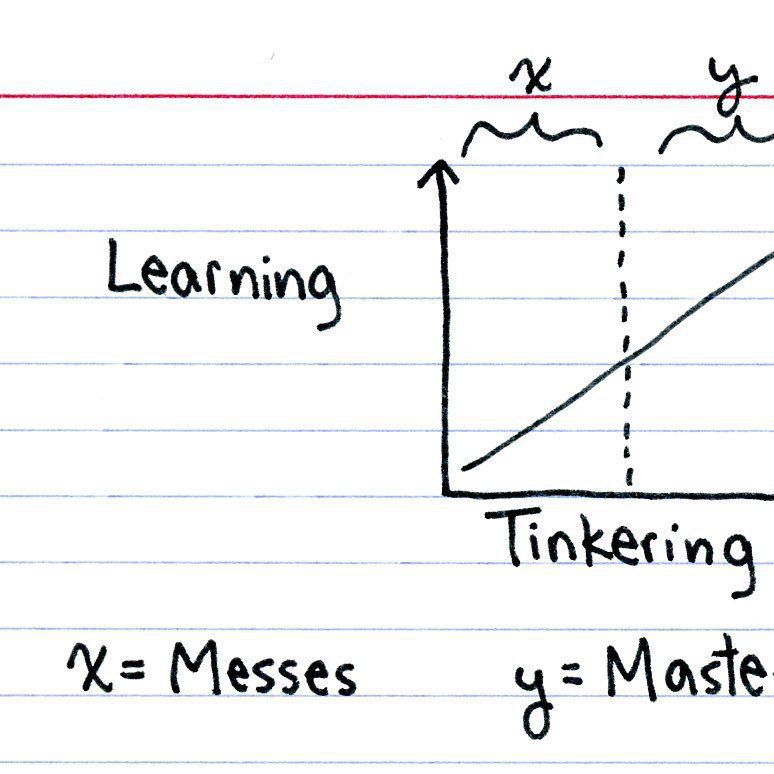 x y
Learning
Tinkering
x = Messes y = Maste